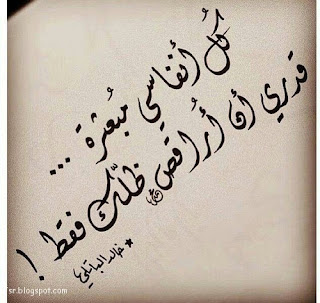 كُل أنفاسي مبُعثرة ...
قدري أن أُراقصَ ظلّكِ فقط !
* خالد الباتلي
sr.blogspot.com